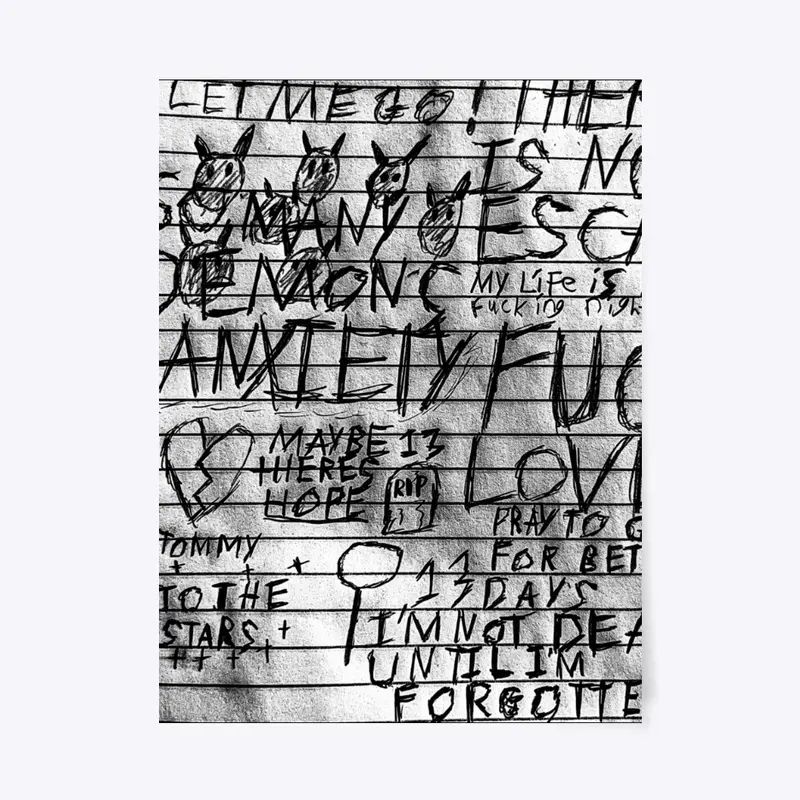 LET ME GO! THE
IS NO
MANY
ESCA
DEMONS
MY LiFe is
Fucking nigh
ANXIETY
FUC
LOV
MAYBE
THERES
HOPE
13
RIP
PRAY TO G
FOR BET
13 DAYS
TOMMY
TO THE
STARS
I'M NOT DEA
UNTIL I'M
FORGOTTE